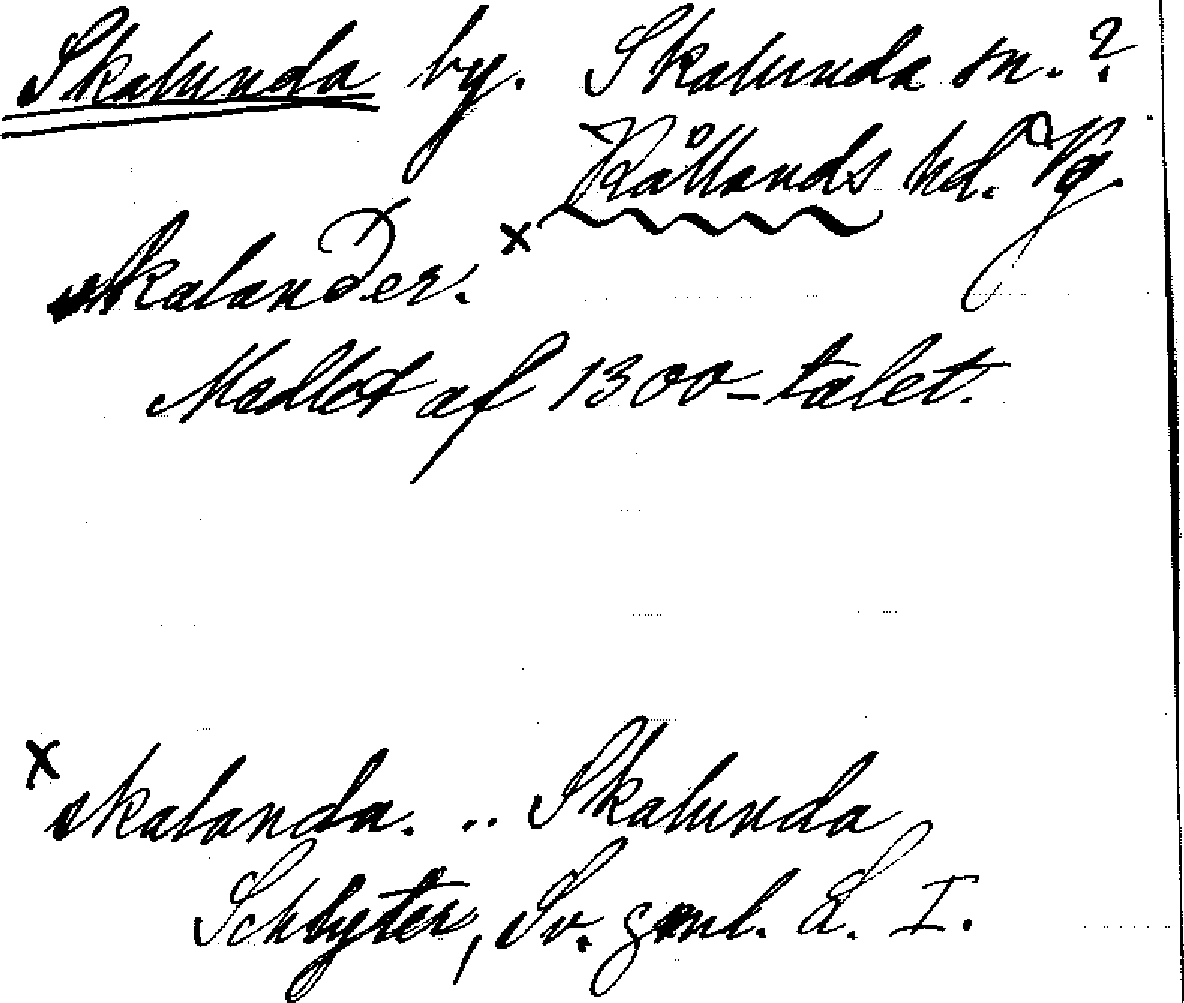 Skalunda by. Skalunda sn.?
Kållands hd. Vg.
skalander. x
Medlet af 1300-talet.
x skalanda. .. Skalunda
Schlyter, Sv. gml. L. I.